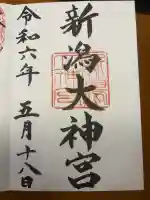 新潟大神宮
令和六年 五月十八日